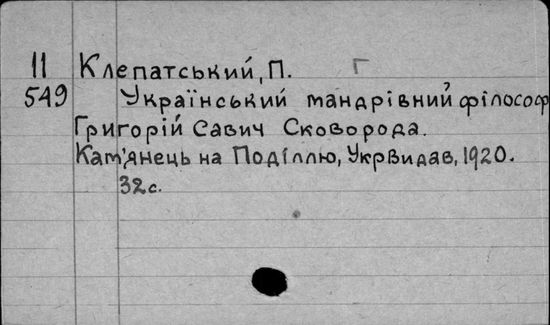 II Клепатський, П. Г
549 Український мандрівний філософ
Григорій Савич Сковорода.
Кам'янець на Поділлю, УкрВидав, 1920.
32 с.